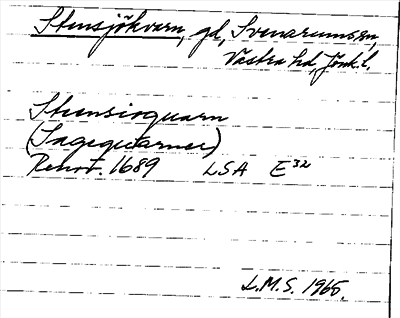 Stensjökvarn, gd, Svenarums sn,
Västra hd, Jönk. l.
Stensioquarn
(Sagequarner)
Renov. 1689 LSA E³²
L.M.S. 1965.